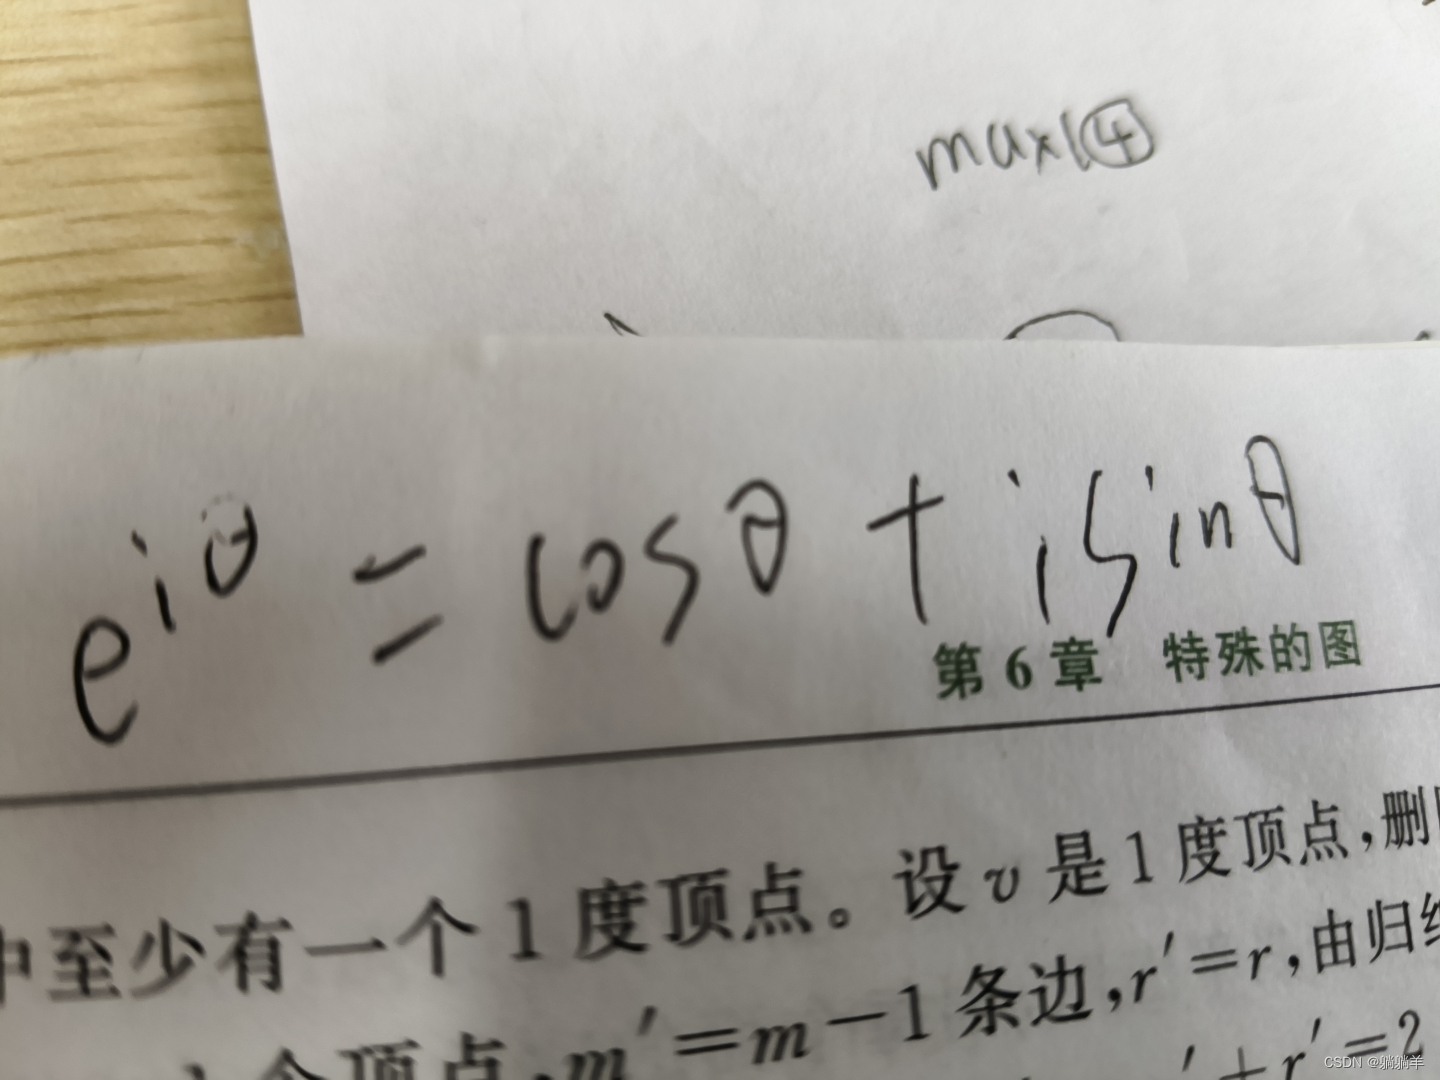 max(④
e^{iθ} = cosθ + isinθ
第6章 特殊的图
中至少有一个1度顶点。设v是1度顶点,删
个顶点,m′=m-1条边,r′=r,由归
′+r′=2
CSDN @躺躺羊